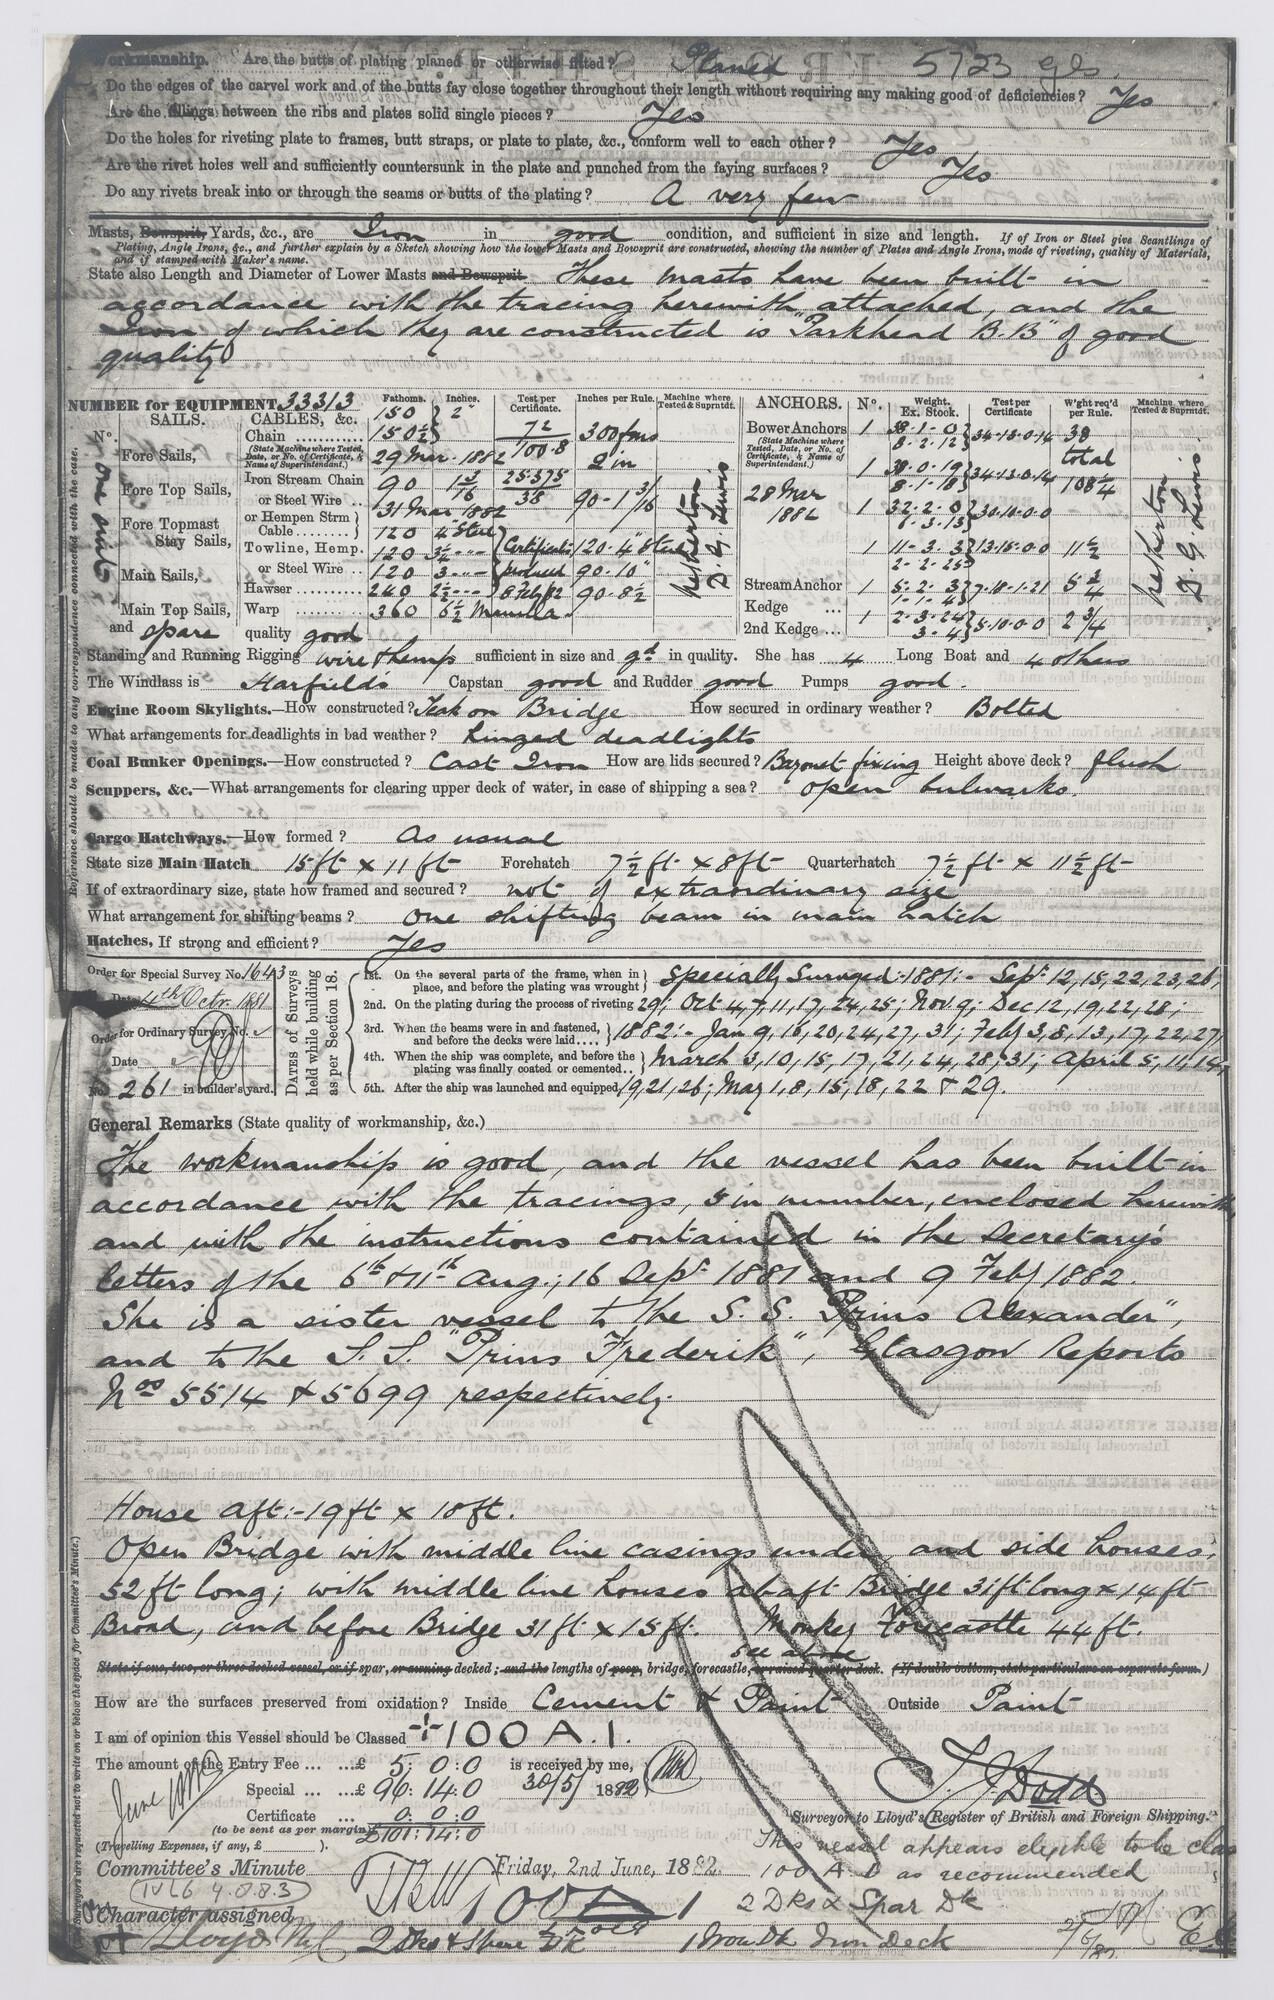 Workmanship. Are the butts of plating planed or otherwise fitted? Planed 5723 Gls.
Do the edges of the carvel work and of the butts fay close together throughout their length without requiring any making good of deficiencies? Yes
Are the fillings between the ribs and plates solid single pieces? Yes
Do the holes for riveting plate to frames, butt straps, or plate to plate, &c., conform well to each other? Yes
Are the rivet holes well and sufficiently countersunk in the plate and punched from the faying surfaces? Yes
Do any rivets break into or through the seams or butts of the plating? A very few
Masts, Bowsprit, Yards, &c., are Iron in good condition, and sufficient in size and length. If of Iron or Steel give Scantlings of
Plating, Angle Irons, &c., and further explain by a Sketch showing how the lower Masts and Bowsprit are constructed, showing the number of Plates and Angle Irons, mode of riveting, quality of Materials,
and if stamped with Maker's name.
State also Length and Diameter of Lower Masts and Bowsprit. These masts have been built in
accordance with the tracing herewith attached, and the
Iron of which they are constructed is "Parkhead B.B" of good
quality
NUMBER for EQUIPMENT 33313 Fathoms. Inches. Test per Certificate. Inches per Rule. Machine where Tested & Suprntdt. ANCHORS. No. Weight. Ex. Stock. Test per Certificate W'ght req'd per Rule. Machine where Tested & Suprntdt.
SAILS. CABLES, &c. 150 } 2"
No. Chain 150½ 72 100.8 300 fms Bower Anchors 1 38.1.0 8.2.12 } 34.18.0.14 38
Fore Sails, (State Machine where Tested, Date, or No. of Certificate, & Name of Superintendent.) 29 Mar. 1882 2 in (State Machine where Tested, Date, No. of Certificate, & Name of Superintendent.) 1 38.0.19 8.1.18 } 34.13.0.14 total 108¼
Fore Top Sails, Iron Stream Chain 90 1 3/16 25.575 38 90 - 1 3/16 28 Mar 1882
or Steel Wire 31 Mar 1882 1 32.2.0 6.3.13 } 30.10.0.0
Fore Topmast Stay Sails, or Hempen Strm Cable 120 4" Steel
Towline, Hemp. 120 3½ Certificate produced 6 Feby 82 120.4" Steel 1 11.3.3 2.2.25 } 13.15.0.0 11½
Main Sails, or Steel Wire 120 3 90.10"
Hawser 240 2½ 90.8½ Stream Anchor 1 5.2.3 1.1.4 } 7.18.1.21 5¾
Main Top Sails, Warp 360 6½ Manilla Kedge 1 2.3.24 3.4 } 5.10.0.0 2¾
and spare quality good 2nd Kedge
one suit Netherton D. G. Lewis Netherton D. G. Lewis
Standing and Running Rigging wire & hemp sufficient in size and gd in quality. She has 4 Long Boat and 4 others
The Windlass is Harfield's Capstan good and Rudder good Pumps good.
Engine Room Skylights.—How constructed? Teak on Bridge How secured in ordinary weather? Bolted
What arrangements for deadlights in bad weather? Hinged deadlights
Coal Bunker Openings.—How constructed? Cast Iron How are lids secured? Bayonet fixing Height above deck? flush
Scuppers, &c.—What arrangements for clearing upper deck of water, in case of shipping a sea? Open bulwarks.
Cargo Hatchways.—How formed? As usual
State size Main Hatch 15 ft x 11 ft Forehatch 7½ ft x 8 ft Quarterhatch 7½ ft x 11½ ft
If of extraordinary size, state how framed and secured? not of extraordinary size
What arrangement for shifting beams? One shifting beam in main hatch
Hatches, If strong and efficient? Yes
Order for Special Survey No. 1643
Date 4th Octr. 1881
Order for Ordinary Survey No.
Date
No. 261 in builder's yard.
Dates of Surveys held while building as per Section 18.
1st. On the several parts of the frame, when in place, and before the plating was wrought } Specially Surveyed:- 1881:- Sept 12, 15, 22, 23, 26,
2nd. On the plating during the process of riveting 29; Oct 4, 7, 11, 17, 24, 25; Nov. 9; Dec 12, 19, 22, 28;
3rd. When the beams were in and fastened, and before the decks were laid.... } 1882:- Jan 9, 16, 20, 24, 27, 31; Feby 3, 8, 13, 17, 22, 27;
4th. When the ship was complete, and before the plating was finally coated or cemented.. } March 3, 10, 15, 17, 21, 24, 28, 31; April 5, 11, 14,
5th. After the ship was launched and equipped 19, 21, 26; May 1, 8, 15, 18, 22 & 29.
General Remarks (State quality of workmanship, &c.)
The workmanship is good, and the vessel has been built in
accordance with the tracings, 5 in number, enclosed herewith
and with the instructions contained in the Secretary's
letters of the 6th & 11th Aug., 16 Sept. 1881 and 9 Feby 1882.
She is a sister vessel to the S. S. "Prins Alexander",
and to the S. S. "Prins Frederik", Glasgow Reports
Nos 5514 & 5699 respectively.
House aft:- 19 ft x 18 ft.
Open Bridge with middle line casings under, and side houses,
52 ft long; with middle line houses abaft Bridge 31 ft long x 14 ft
Broad, and before Bridge 31 ft x 15 ft. Monkey Forecastle 44 ft.
see above
State if one, two, or three decked vessel, or if spar, or awning decked; and the lengths of poop, bridge, forecastle, or raised quarter deck. (If double bottom, state particulars on separate form.)
How are the surfaces preserved from oxidation? Inside Cement & Paint Outside Paint
I am of opinion this Vessel should be Classed +100 A.1.
The amount of the Entry Fee ... ...£ 5:0:0 is received by me,
Special ... ...£ 96:14:0 30/5/ 1882
Certificate ... 0:0:0
(to be sent as per margin) £101:14:0
(Travelling Expenses, if any, £ ).
Surveyor to Lloyd's Register of British and Foreign Shipping.
This vessel appears eligible to be clas
100 A 1 as recommended
Committee's Minute Friday, 2nd June, 1882.
Character assigned 100A1
2 Dks & Spar Dk
Lloyd MC 2 Dks & Spar Dk 1 Iron Dk Iron Deck
2/6/82
Reference should be made to any correspondence connected with the case.
(Surveyors are requested not to write on or below the space for Committee's Minute.)